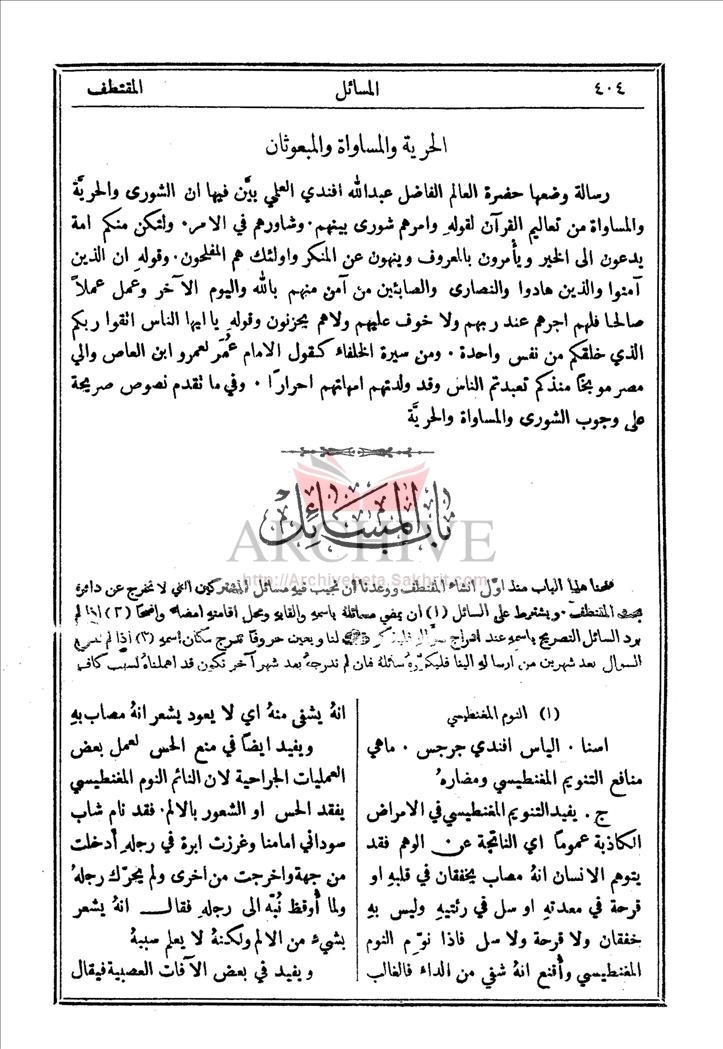 ٤٠٤
المسائل
المقتطف
الحرية والمساواة والمبعوثان
رسالة وضعها حضرة العالم الفاضل عبدالله افندي العلمي بيَّن فيها ان الشورى والحريَّة
والمساواة من تعاليم القرآن لقولهِ وامرهم شورى بينهم. وشاورهم في الامر. ولتكن منكم امة
يدعون الى الخير ويأمرون بالمعروف وينهون عن المنكر واولئك هم المفلحون. وقولهِ ان الذين
آمنوا والذين هادوا والنصارى والصابئين من آمن منهم بالله واليوم الآخر وعمل عملاً
صالحا فلهم اجرهم عند ربهم ولا خوف عليهم ولاهم يحزنون وقولهِ يا ايها الناس اتقوا ربكم
الذي خلقكم من نفس واحدة. ومن سيرة الخلفاء كقول الامام عُمَر لعمرو ابن العاص والي
مصر موبخاً منذكم تعبدتم الناس وقد ولدتهم امهاتهم احرارًا. وفي ما تقدم نصوص صريحة
على وجوب الشورى والمساواة والحريَّة
باب المسائل
ARCHIVE
http://Archivebeta.Sakhrit.com
فتحنا هذا الباب منذ اول انشاء المقتطف ووعدنا ان نجيب فيه مسائل المشتركين التي لا تخرج عن دائرة
المقتطف ويشترط على السائل (١) أن يمضي مسائله باسمه والقابه ومحل اقامته امضاء واضحا (٢) اذا لم
يرد السائل التصريح باسمه عند ادراج سؤاله فليذكر ذلك لنا ويعين حروفا تدرج مكان اسمه (٣) اذا لم ندرج
السوال بعد شهرين من ارساله الينا فليكرره سائله فان لم ندرجه بعد شهر آخر نكون قد اهملناه لسبب كاف
(١) النوم المغنطيسي
اسنا. الياس افندي جرجس. ماهي
منافع التنويم المغنطيسي ومضارهُ
ج. يفيد التنويم المغنطيسي في الامراض
الكاذبة عموماً اي الناتجة عن الوهم فقد
يتوهم الانسان انهُ مصاب بخفقان في قلبهِ او
قرحة في معدتهِ او سل في رئتيهِ وليس بهِ
خفقان ولا قرحة ولا سل فاذا نوِّم النوم
المغنطيسي وأُقنع انهُ شفي من الداء فالغالب
انهُ يشفى منهُ اي لا يعود يشعر انهُ مصاب بهِ
ويفيد ايضاً في منع الحس لعمل بعض
العمليات الجراحية لان النائم النوم المغنطيسي
يفقد الحس او الشعور بالالم. فقد نام شاب
سوداني امامنا وغرزت ابرة في رجلهِ أُدخلت
من جهة واخرجت من اخرى ولم يحرّك رجلهُ
ولما أُوقظ نُبّه الى رجلهِ فقال انهُ يشعر
بشيء من الالم ولكنهُ لا يعلم سببهُ
ويفيد في بعض الآفات العصبية فيقال